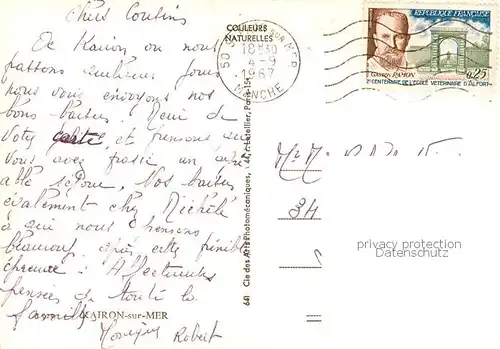 Chers Cousins
De Kairon où nous
passons quelques jours
nous vous envoyons nos
bons baisers. Merci de
votre carte et pensons que
vous avez passé un agré
able séjour. Nos baisers
également chez Michèle
à qui nous pensons
beaucoup après cette pénible
épreuve. Affectueuses
pensées de toute la
famille
KAIRON-sur-MER
Monique Robert
COULEURS
NATURELLES
50 MER
18H30
4-9
1967
MANCHE
RÉPUBLIQUE FRANÇAISE
GASTON RAMON
0,25
2e CENTENAIRE DE L'ÉCOLE VÉTÉRINAIRE D'ALFORT
641 Cie des Arts Photomécaniques, Paris-15e
M. M.
34
privacy protection
Datenschutz